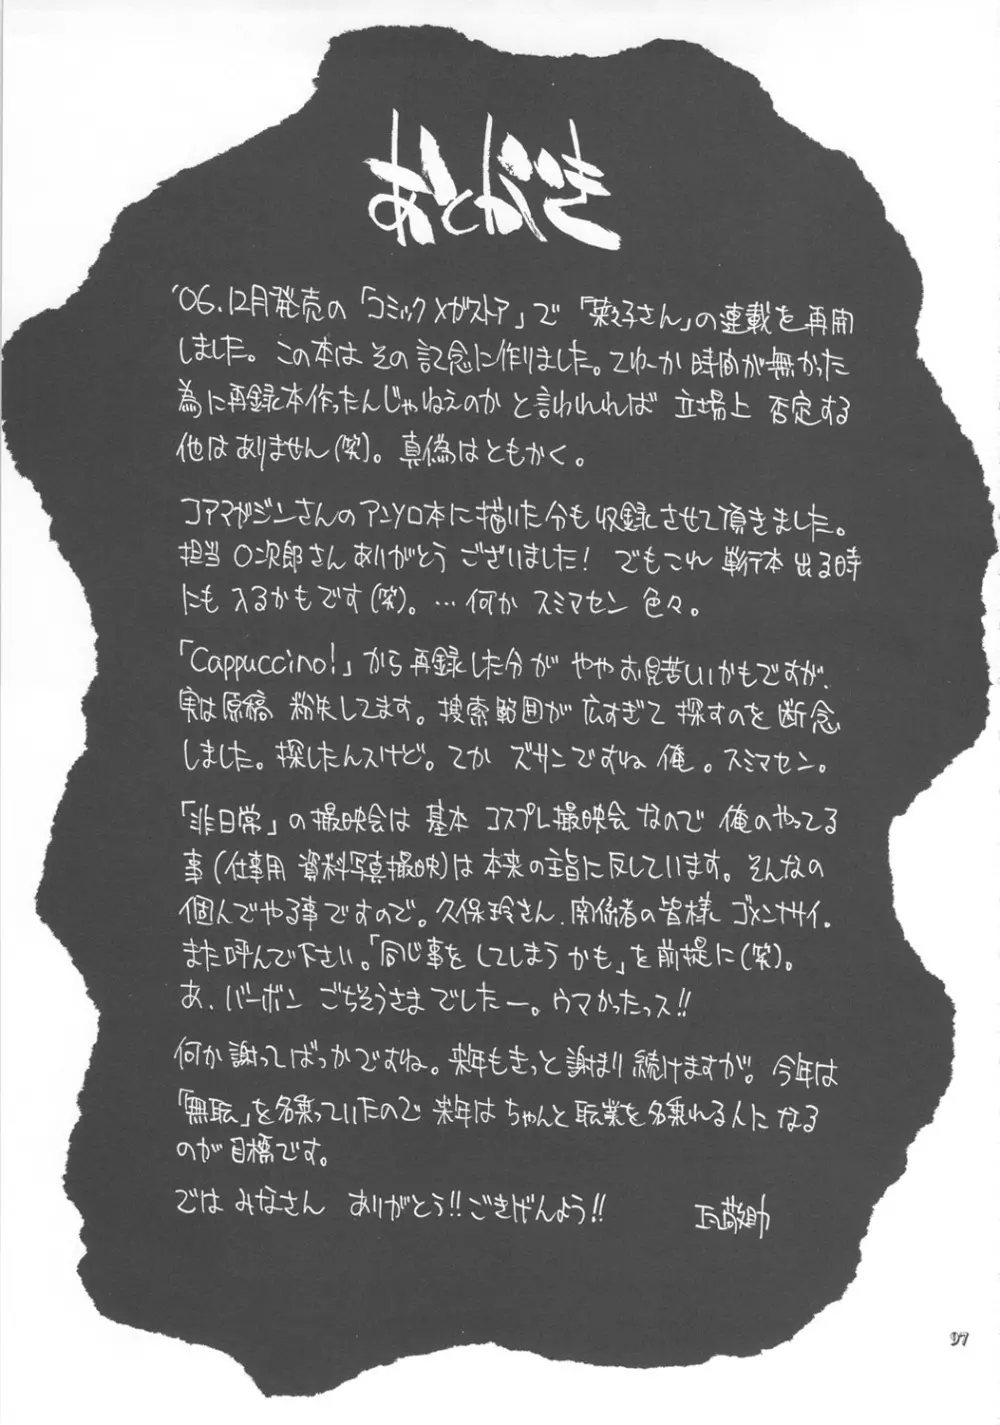 あとがき
'06.12月発売の「コミックメガストア」で「菜々子さん」の連載を再開
しました。この本はその記念に作りました。てゆーか時間が無かった
為に再録本作ったんじゃねえのかと言われれば 立場上 否定する
他はありません(笑)。真偽はともかく。
コアマガジンさんのアンソロ本に描いた分も収録させて頂きました。
担当〇次郎さんありがとうございました! でもこれ単行本出る時
にも入るかもです(笑)。…何かスミマセン色々。
「Cappuccino!」から再録した分がややお見苦しいかもですが、
実は原稿紛失してます。捜索範囲が広すぎて探すのを断念
しました。探したんスけど。てかズサンですね俺。スミマセン。
「非日常」の撮映会は基本コスプレ撮映会なので俺のやってる
事(仕事用 資料写真撮映)は本来の主旨に反しています。そんなの
個人でやる事ですので。久保玲さん、関係者の皆様ゴメンナサイ。
また呼んで下さい。「同じ事をしてしまうかも」を前提に(笑)。
あ、バーボン ごちそうさまでしたー。ウマかったっス!!
何か謝ってばっかですね。来年もきっと謝まり続けますが。今年は
「無転」を名乗っていたので来年はちゃんと転業を名乗れる人になる
のが目標です。
では みなさん ありがとう!! ごきげんよう!! 敬助
97